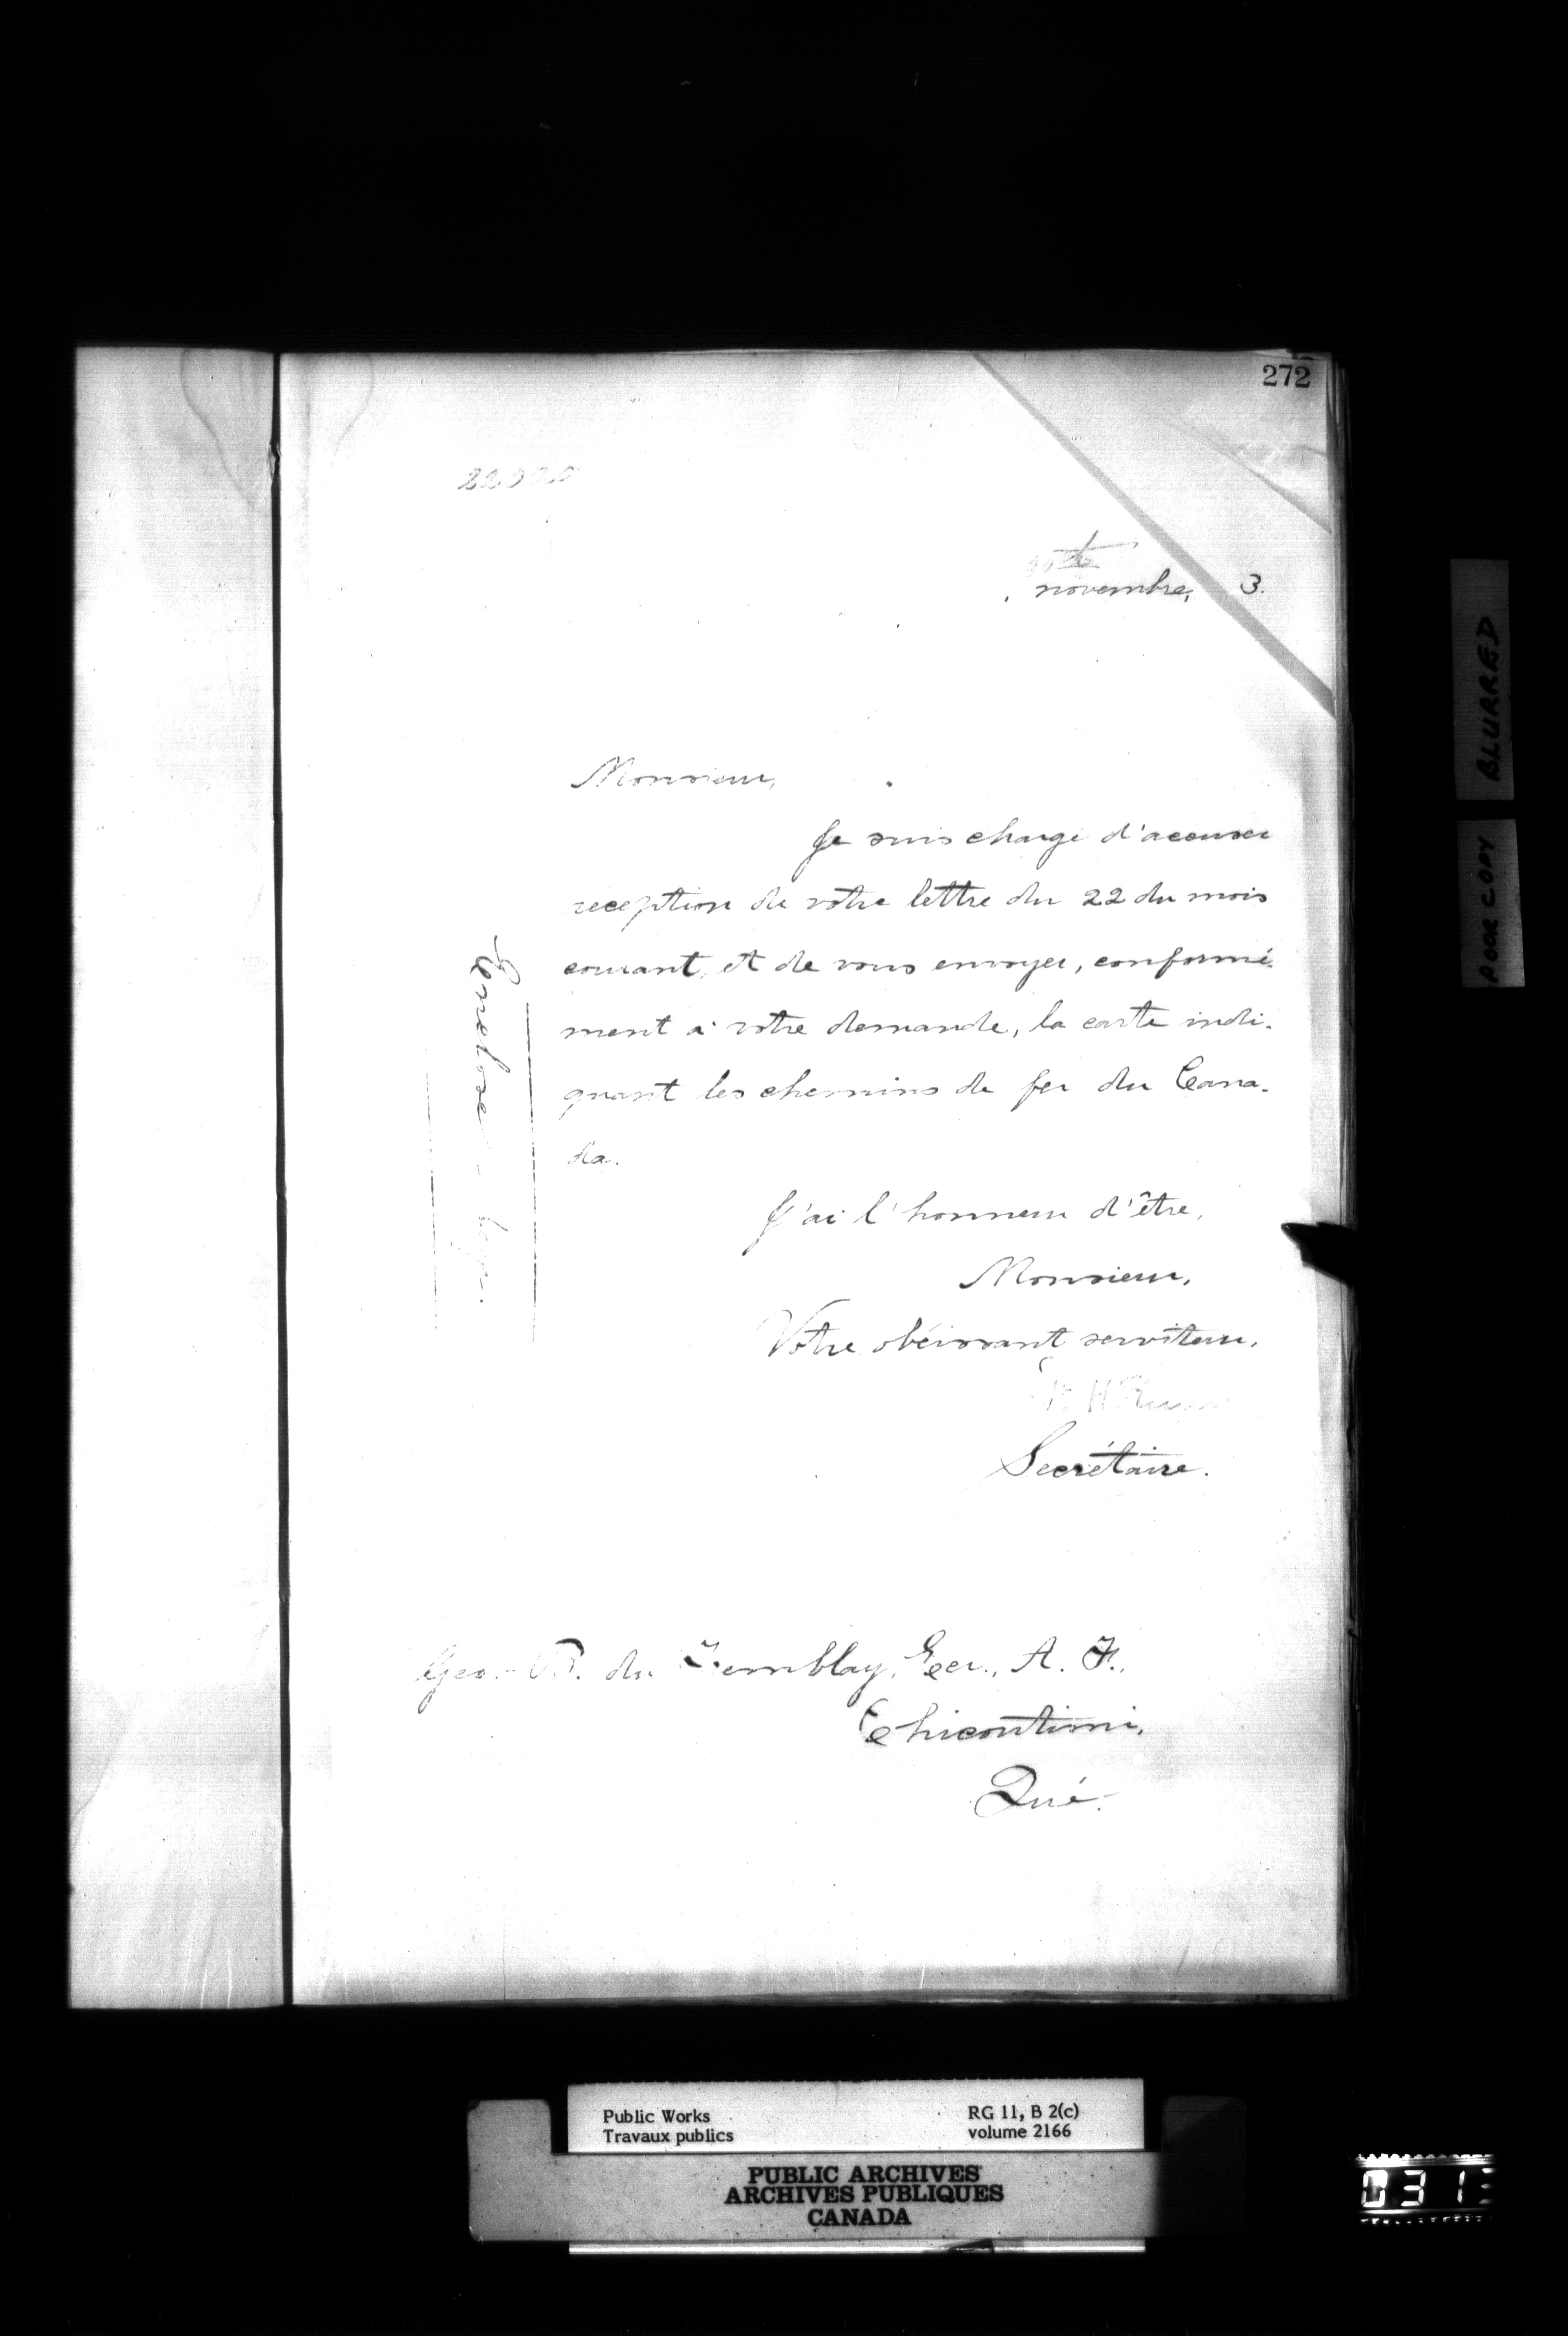 272
novembre, 3.
Monsieur,
Je suis chargé d'accuser
reception de votre lettre du 22 du mois
courant, et de vous envoyer, conformé-
ment à votre demande, la carte indi-
quant les chemins de fer du Cana-
da.
J'ai l'honneur d'être,
Monsieur,
Votre obéissant serviteur,
Secrétaire.
Enclose
Geo. du Tremblay, Ecr., A. F.,
Chicoutimi,
Qué.
BLURRED
POOR COPY
Public Works
Travaux publics
RG 11, B 2(c)
volume 2166
PUBLIC ARCHIVES
ARCHIVES PUBLIQUES
CANADA